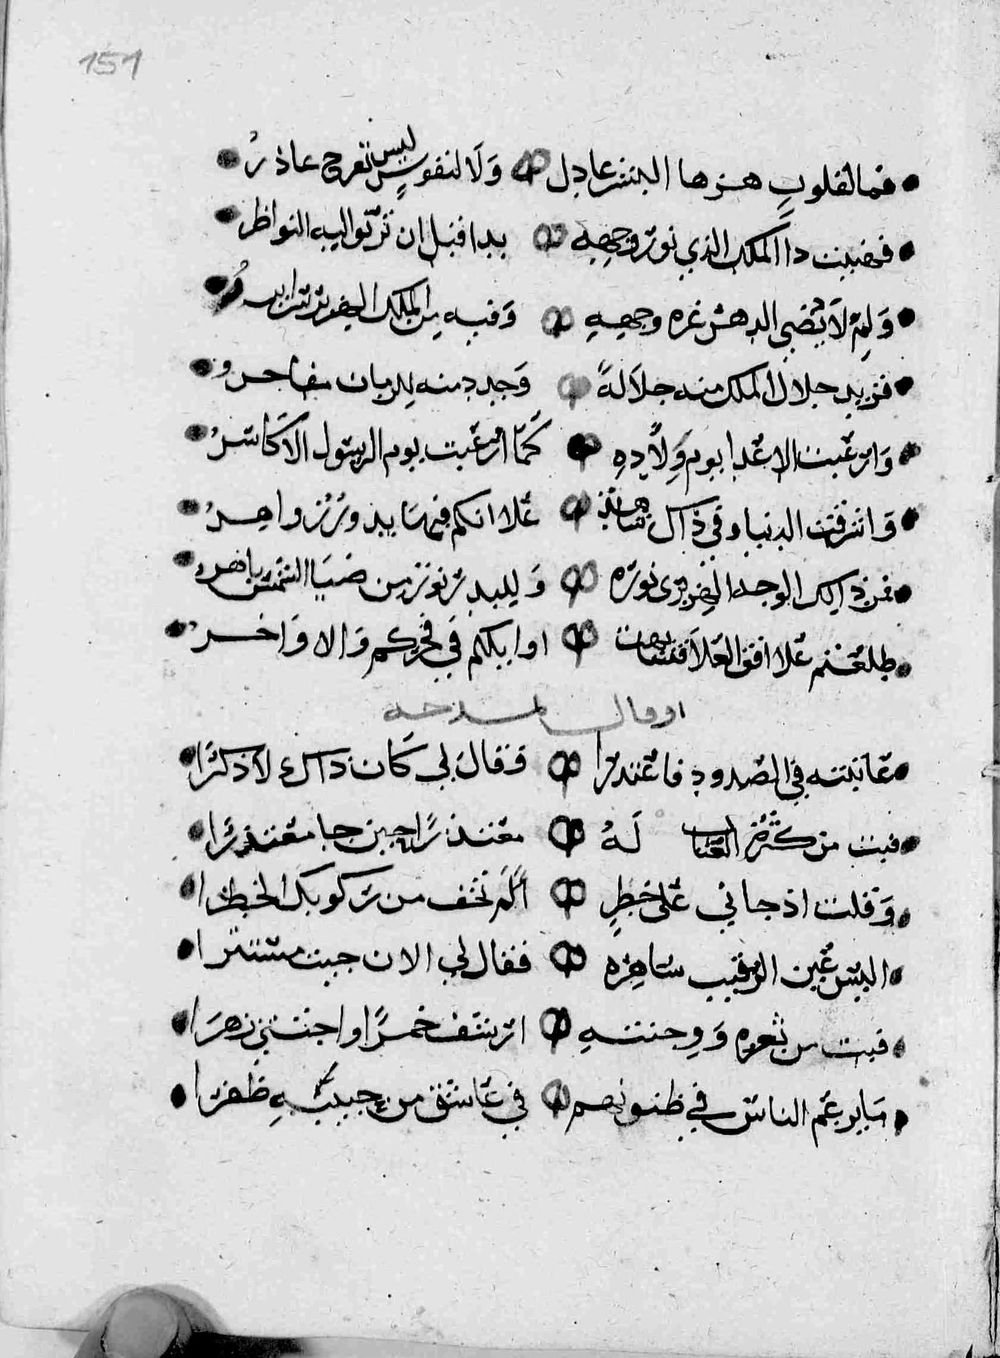 151
فما لقلوب هزها البشر عاذل ولا لنفوس ليس تفرح عاذر
فحييت دا الملك الذي نور وجهه بدا قبل ان ترنوا اليه النواظر
ولم لا يضي الدهر غره وجهه وفيه من الملك
فزيد جلال الملك منه جلالةً وجدد منه للزمان مفاخر
وارعبت الاعدا يوم ولاده كما ارعبت يوم الرسول الاكاسر
واشرقت الدنيا وفي ذاك شاهد علا انكم فيها بدور زواهر
فمن ذلك الوجه نوره وللبدر نور من ضيا الشمس باهر
طلعتم علا افق العلا فتشابهت اوايلكم في فخركم والاواخر
او قال
عاتبته في الصدود فاعتذرا وقال لي كان داك لا ذكرا
فبت من كثرة العتاب له معتذرًا حين جا معتذرا
وقلت اذ جاني على خطرٍ الم تخف من ركوبك الخطرا
اليس عين الرقيب ساهره فقال لي الان جيت مستترا
فبت من ثغره ووجنتهِ ارتشف خمرًا واجتني زهرا
ما يزعم الناس في ظنونهم في عاشق من حبيبهِ ظفرا